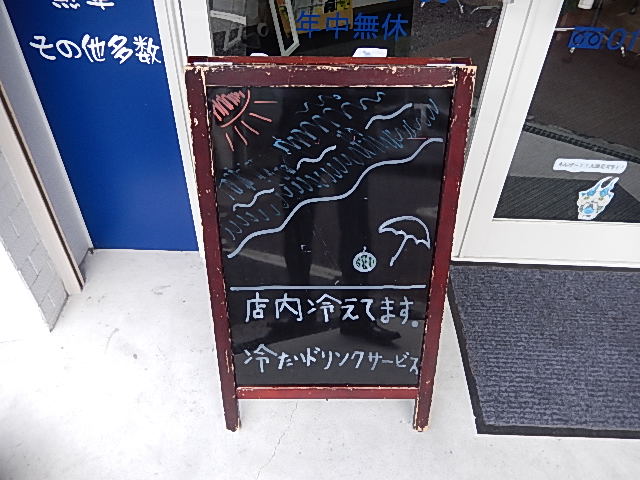 その他多数
年中無休
店内冷えてます。
冷たいドリンクサービス